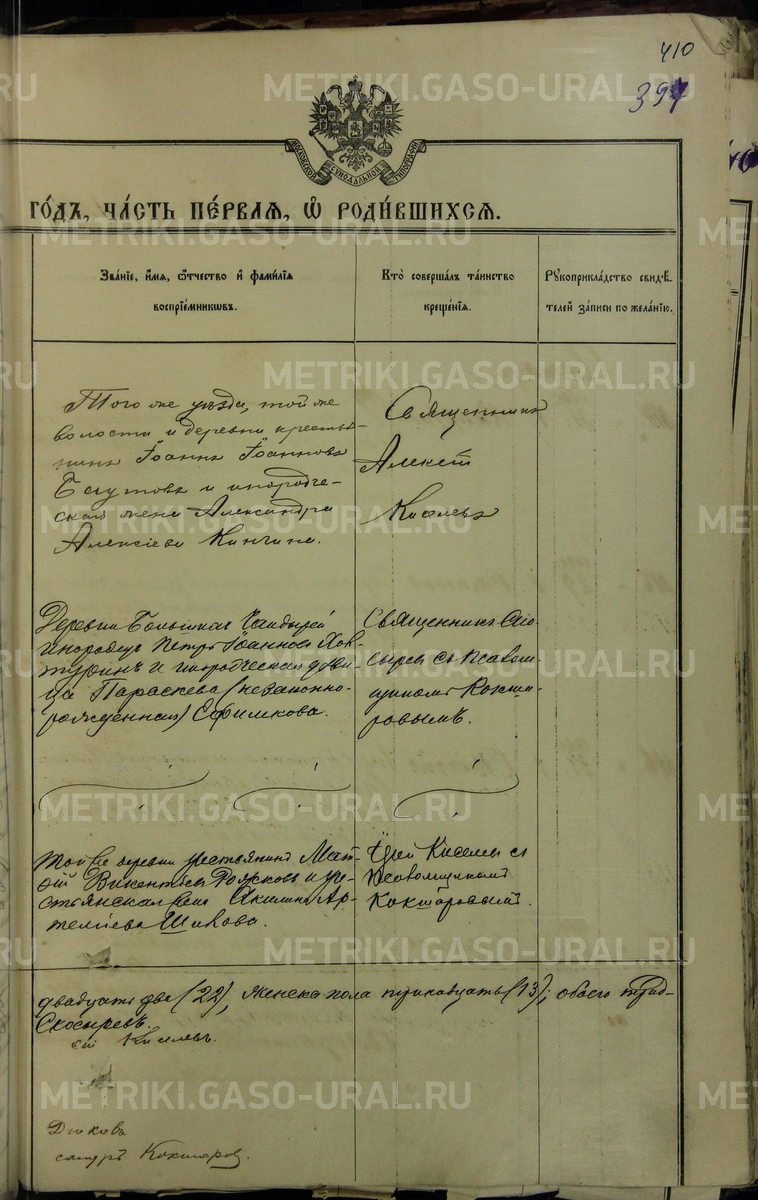 410
397
МОСКОВСКОЙ СѴНОДАЛЬНОЙ ТИПОГРАФІИ
ГО́ДЪ, ЧА́СТЬ ПЕ́РВАЯ, Ѽ РОДИ́ВШИХСЯ.
Зва́ніе, и́мя, ѻ́тчество и҆ фами́лія
воспріе́мниковъ.
Кто̀ соверша́лъ та́инство
креще́нія.
Рꙋкоприкла́дство свидѣ́-
телей за́писи по жела́нію.
Того же уѣзда, той же
волости и деревни крестья-
нинъ Іоаннъ Іоанновъ
и инородче-
ская жена Александра
Алексіева Кинчина.
Священникъ
Алексій
Киселевъ
Деревни Большихъ
инородецъ Петръ Іоанновъ
и инородческая дѣви-
ца Параскева (незаконно-
рожденная) Ефимкова.
Священникъ Ско-
сыревъ съ псаломщи-
комъ Кокша-
ровымъ.
Той же деревни крестьянинъ Мат-
ѳій Викентіевъ Рожковъ и кре-
стьянская жена Акилина Ар-
теміева Шихова.
Іерей Киселевъ съ
псаломщикомъ
Кокшаровымъ.
двадцать два (22), женска пола тринадцать (13); обоего трид-
Скосыревъ.
сій Киселевъ.
Дьяковъ
Кокшаровъ.
METRIKI.GASO-URAL.RU